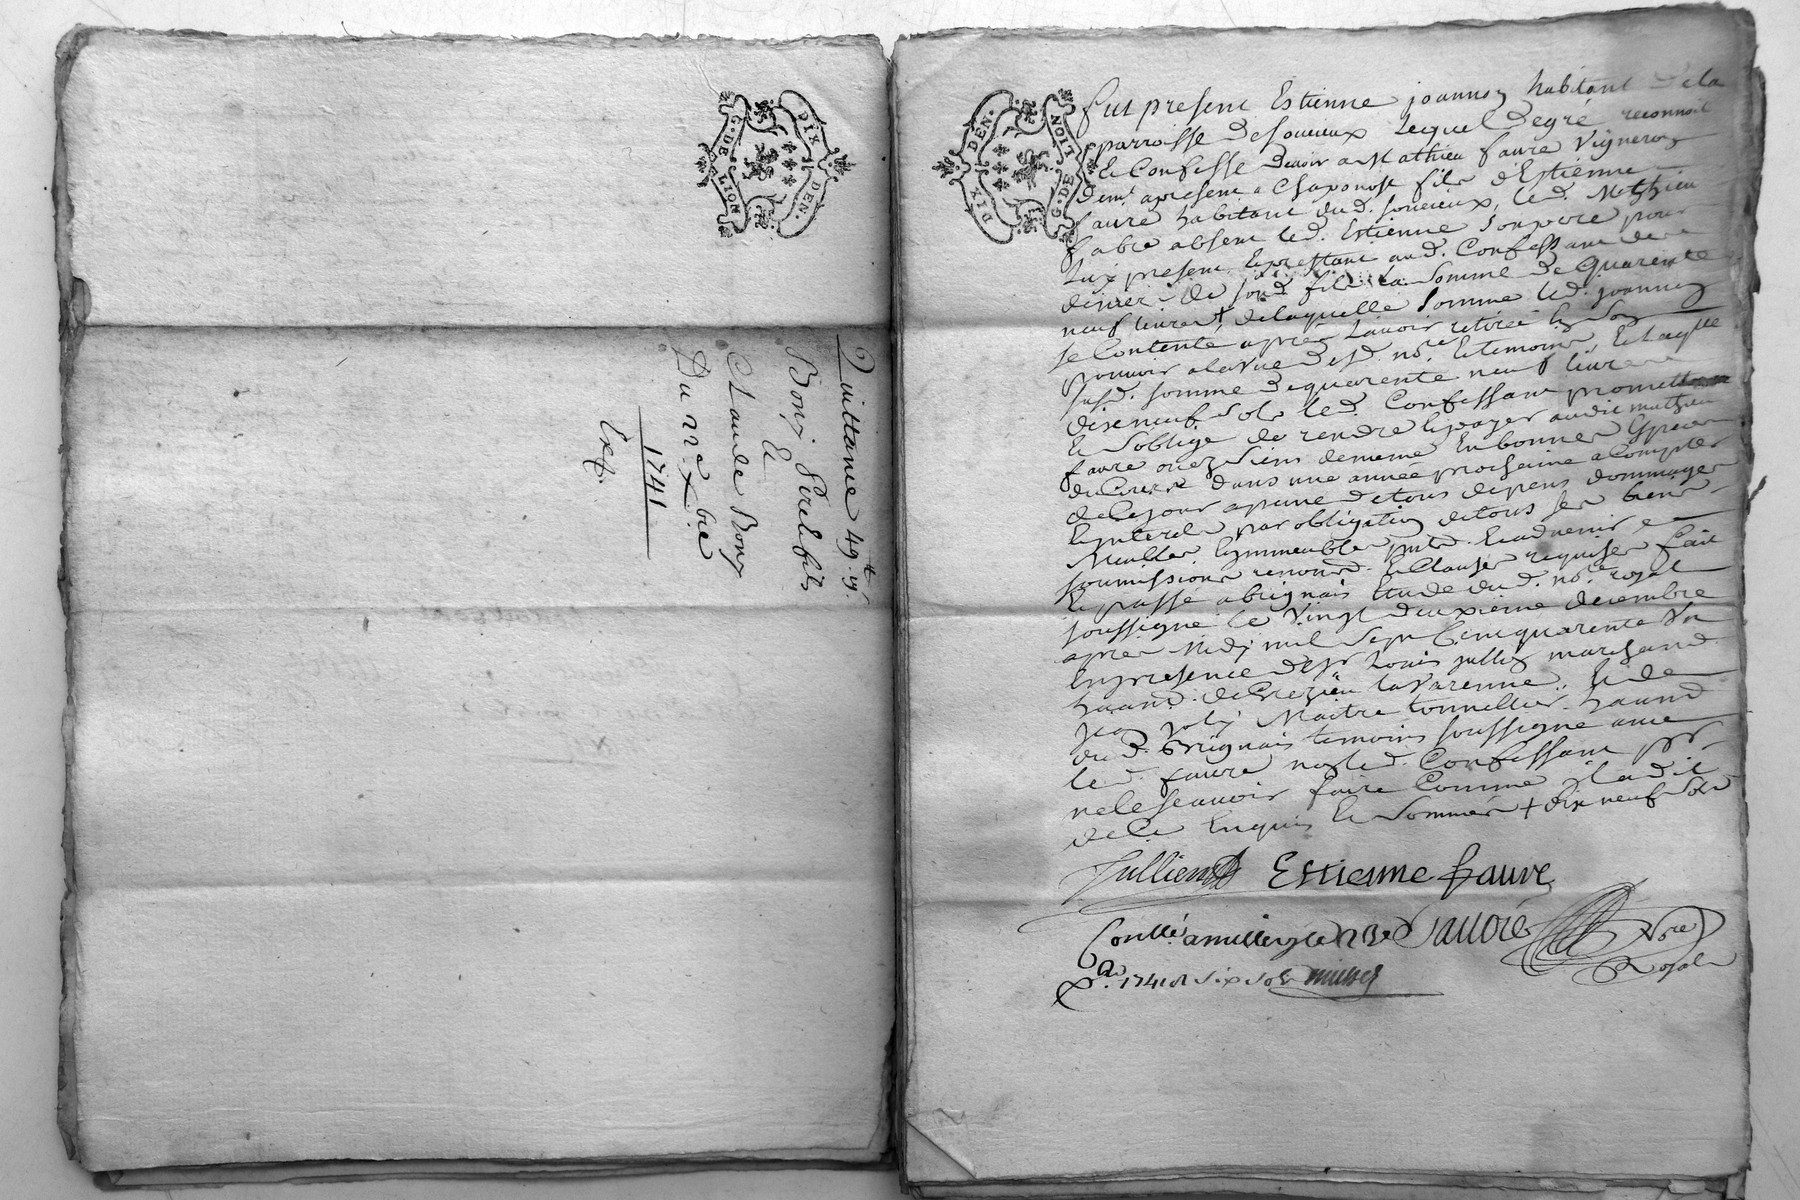 G·DE LION
DIX DEN·
Quittance 49 ₶ 19 s.
Bonj
Et
Claude Bonj
Du
1741
DIX DEN·
G·DE LION
fut present Estienne joannoz habitant de la
parroisse de soucieux lequel de gré reconnoit
Et Confesse devoir a Mathieu faure Vigneroz
demt apresent a Chaponost fils d'Estienne
faure habitant dud. soucieux, led. Mathieu
fabre absent led. Estienne son pere pour
luy present Et prestant aud. Confessant de
denier de sond. fils La somme de quarente
neuf livres + de laquelle somme led. joannoz
se Contente apres Lavoir retirée En son
pouvoir a la vue dud. nore Et temoins, Et laqlle
susd. somme de quarente neuf livres
dixneuf sols led. Confessant promet
Et s'oblige de rendre Et payer audit mathieu
faure ou ez siens de meme En bonnes Especes
du Cours dans une année prochaine a Compter
de Ce jour a peine de tous depens dommages
Et interets par obligation de tous ses biens
Meubles Et immeubles pnts Et advenir
soumissions renond. Et Clauses requises fait
Et passé a brignais Etude dud. nore royal
soussigné le Vingt deuxieme decembre
apres Midy mil sept Cent quarente Un
En presence de sr Louis jullien marchand
haand. de la Varenne, Et de
jean joly Maitre tonnellier haand
du d. Brignais temoins soussigné avec
led. faure non led. Confessant pr
ne le scavoir faire Comme il a dit
de Ce Enquis Et Sommé + dix neuf sols
Jullien Estienne faure
Conllé a millery le
1741 Rt six sols
Nore
Royal